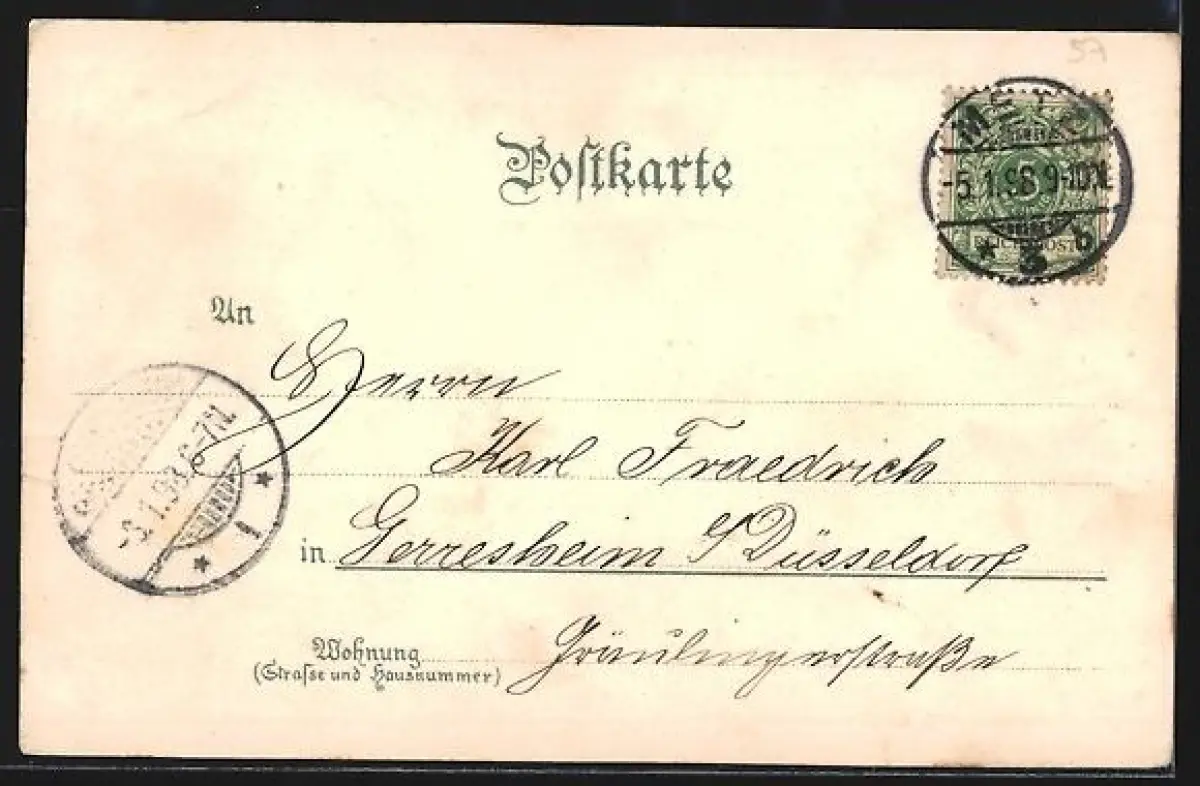 57
Postkarte
METZ
-5.1.98 9-10N.
* 3 b
5
REICHSPOST
An
Herrn
Karl Fraedrich
in Gerresheim / Düsseldorf
-6.1.98. 6-7N.
* 1 *
Wohnung Gräulingerstraße
(Straſse und Hausnummer)